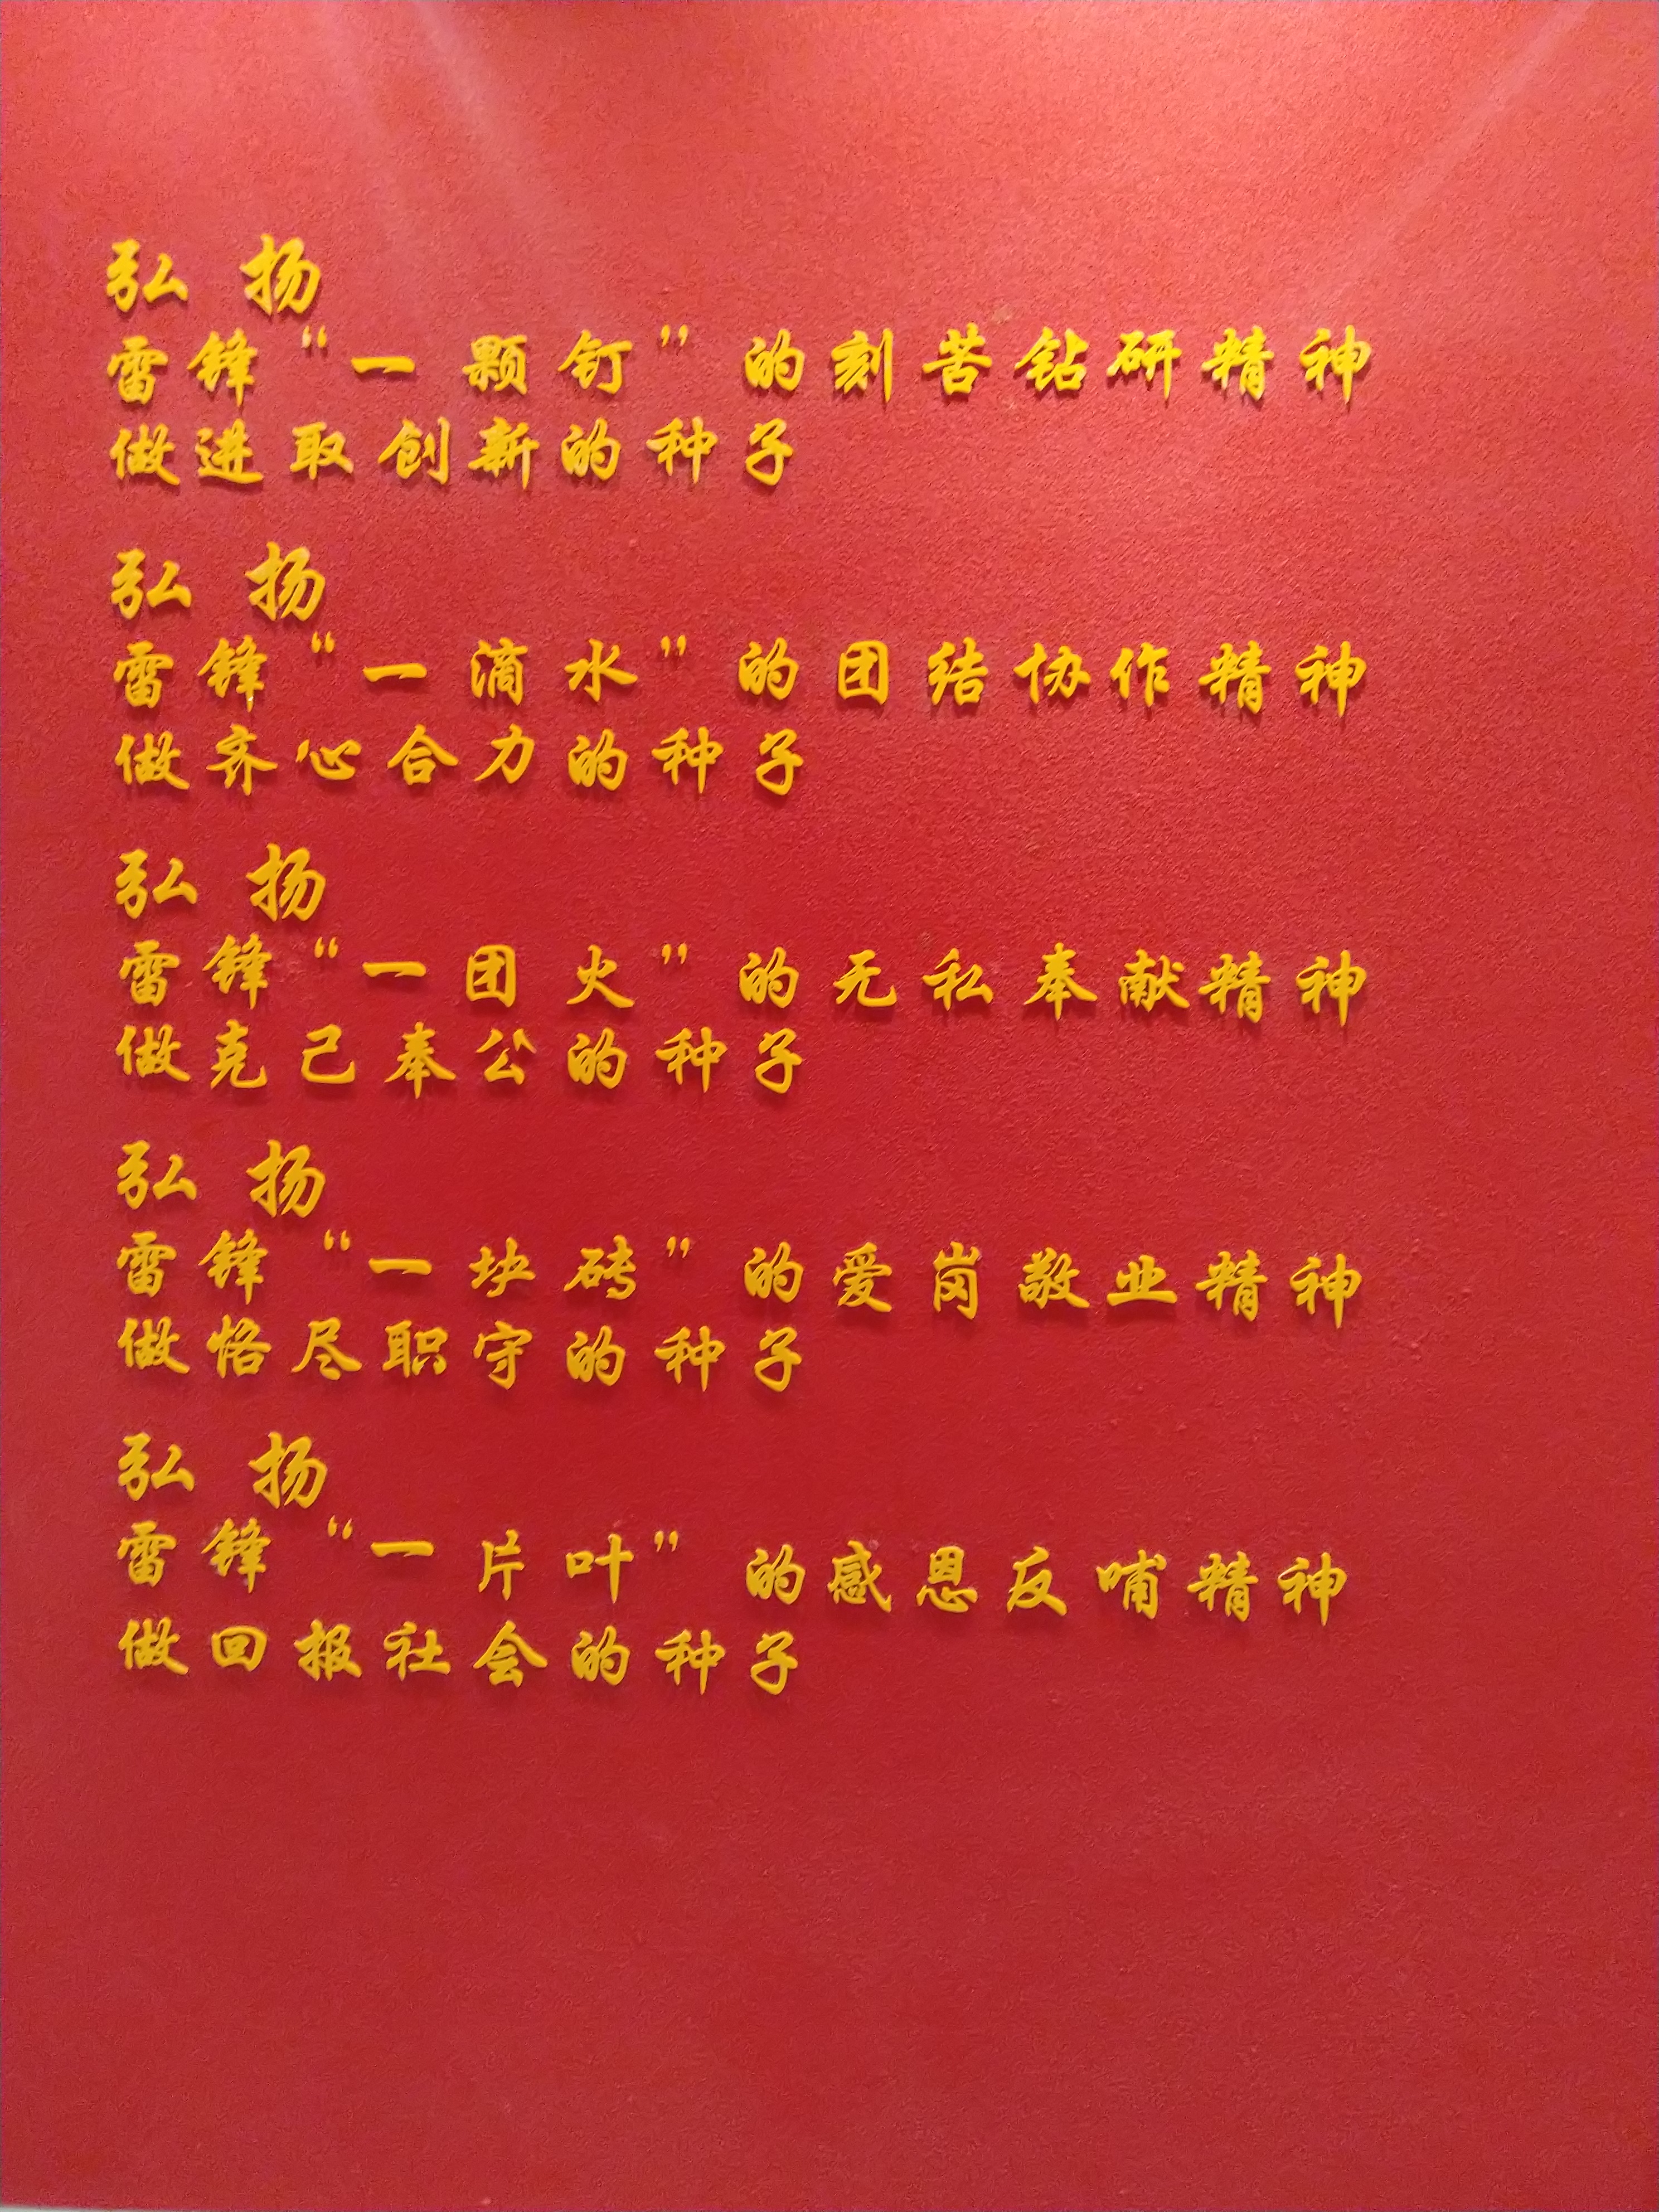 弘扬
雷锋“一颗钉”的刻苦钻研精神
做进取创新的种子
弘扬
雷锋“一滴水”的团结协作精神
做齐心合力的种子
弘扬
雷锋“一团火”的无私奉献精神
做克己奉公的种子
弘扬
雷锋“一块砖”的爱岗敬业精神
做恪尽职守的种子
弘扬
雷锋“一片叶”的感恩反哺精神
做回报社会的种子